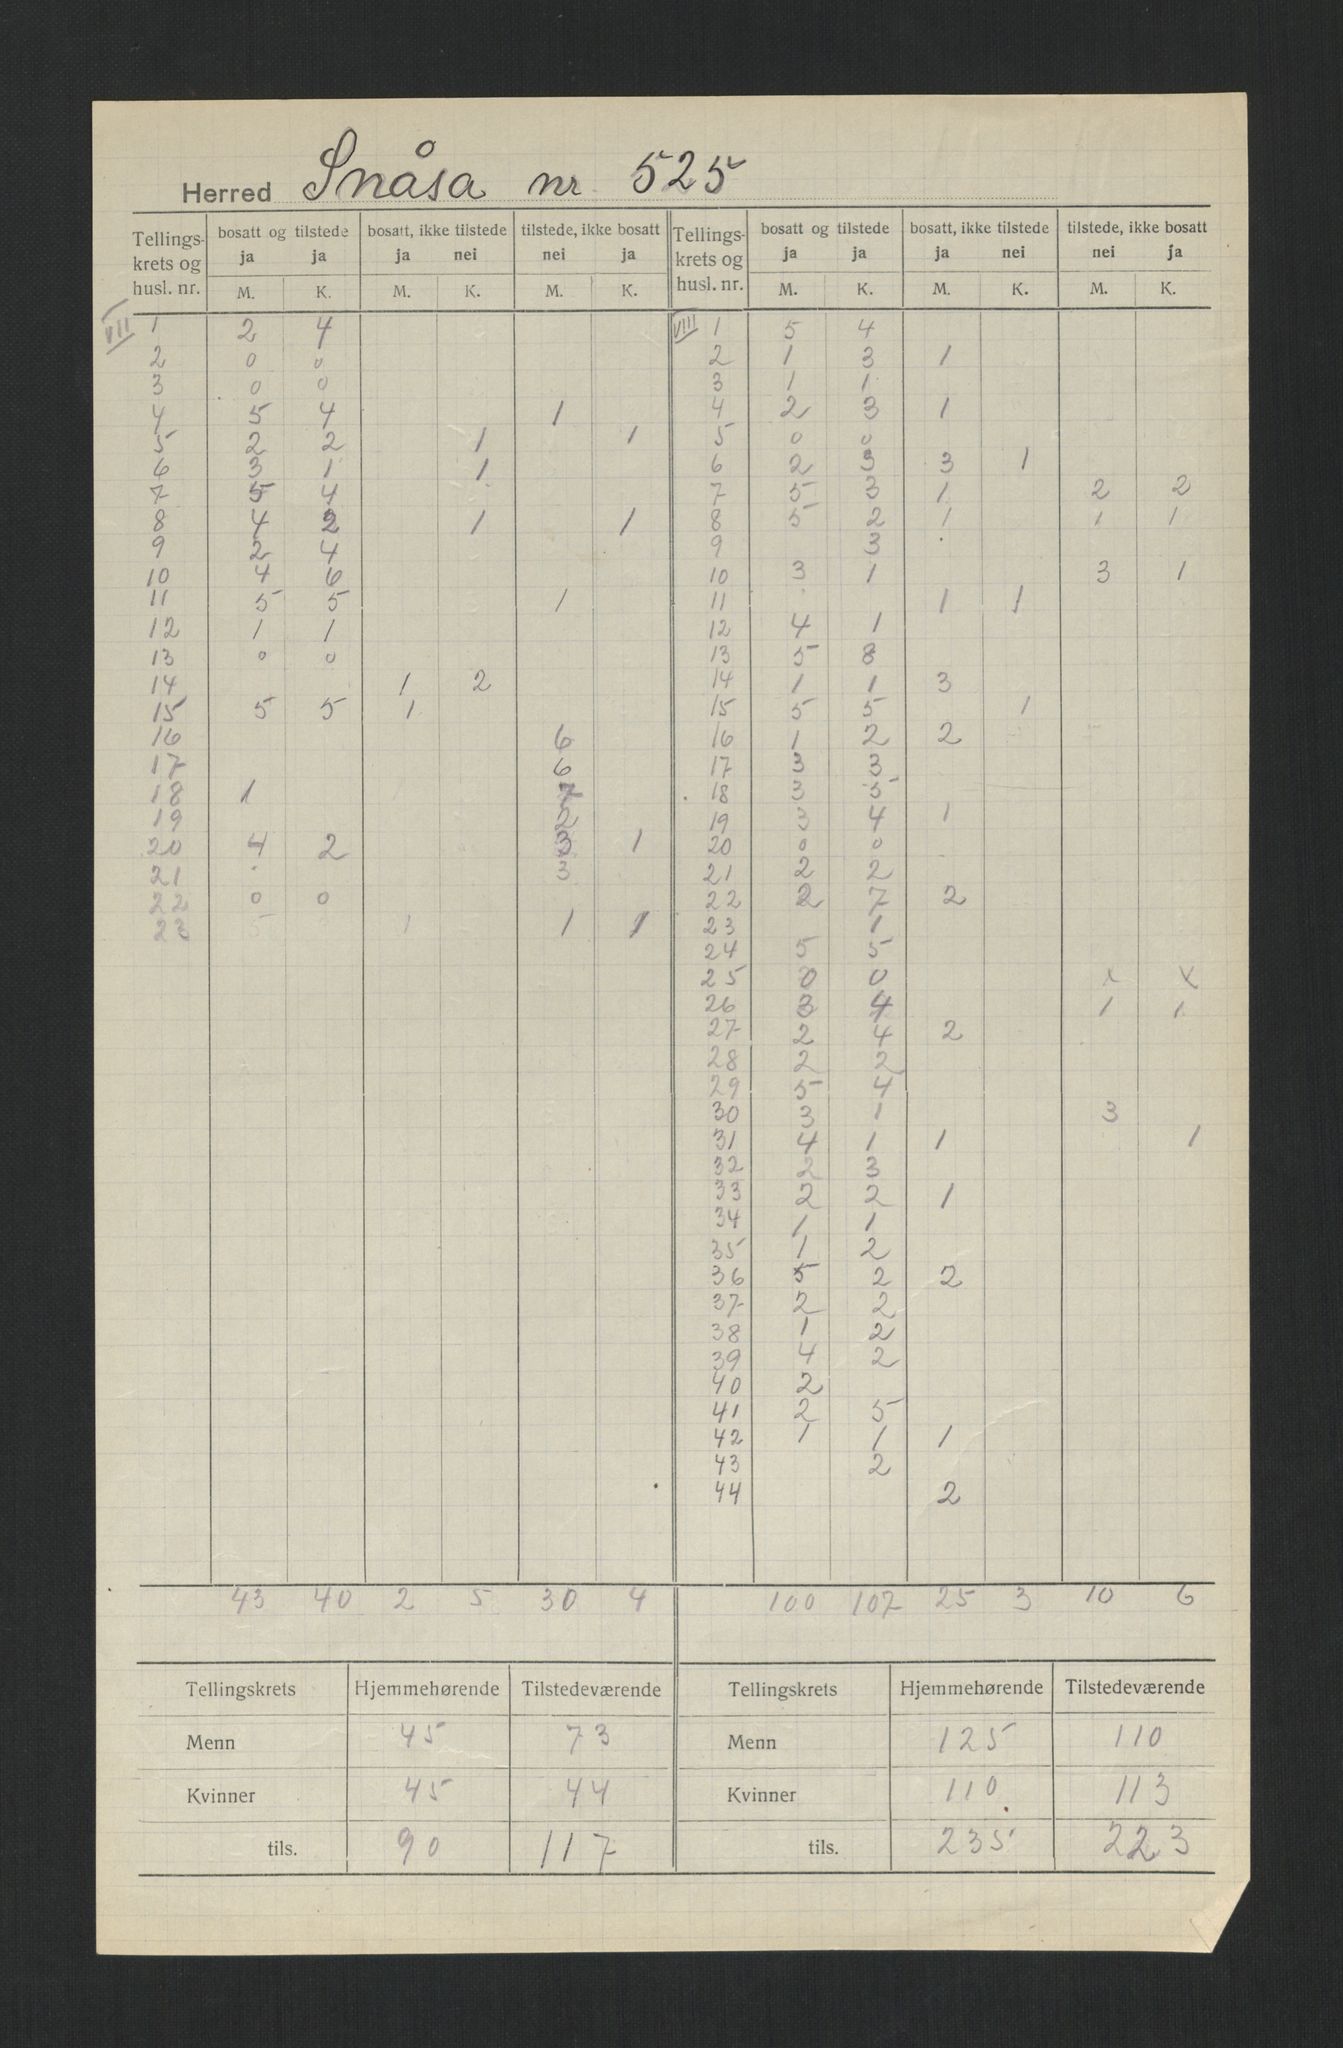 Herred Snåsa nr. 525
Tellings- krets og husl. nr. | bosatt og tilstede ja ja | bosatt, ikke tilstede ja nei | tilstede, ikke bosatt nei ja | Tellings- krets og husl. nr. | bosatt og tilstede ja ja | bosatt, ikke tilstede ja nei | tilstede, ikke bosatt nei ja
M. K. M. K. M. K. M. K. M. K. M. K.
VII 1 2 4
2 0 0
3 0 0
4 5 4 1
5 2 2 1 1
6 3 1 1
7 5 4
8 4 2 1 1
9 2 4
10 4 6
11 5 5 1
12 1 1
13 0 0
14 1 2
15 5 5 1
16 6
17 6
18 1 7
19 2
20 4 2 3 1
21 3
22 0 0
23 1 1
43 40 2 5 30 4
VIII 1 5 4
2 1 3 1
3 1 1
4 2 3 1
5 0 0
6 2 3 3 1
7 5 3 1 2 2
8 5 2 1 1 1
9 3
10 3 1 3 1
11 1 1
12 4 1
13 5 8
14 1 1 3
15 5 5 1
16 1 2 2
17 3 3
18 3 5
19 3 4 1
20 0 0
21 2 2
22 2 7 2
23 1
24 5 5
25 0 0 x x
26 3 4 1 1
27 2 4 2
28 2 2
29 5 4
30 3 1 3
31 4 1 1 1
32 2 3
33 2 2 1
34 1 1
35 1 2
36 5 2 2
37 2 2
38 1 2
39 4 2
40 2
41 2 5
42 1 1 1
43 2
44 2
100 107 25 3 10 6
Tellingskrets Hjemmehørende Tilstedeværende
Menn 45 73
Kvinner 45 44
tils. 90 117
Tellingskrets Hjemmehørende Tilstedeværende
Menn 125 110
Kvinner 110 113
tils. 235 223